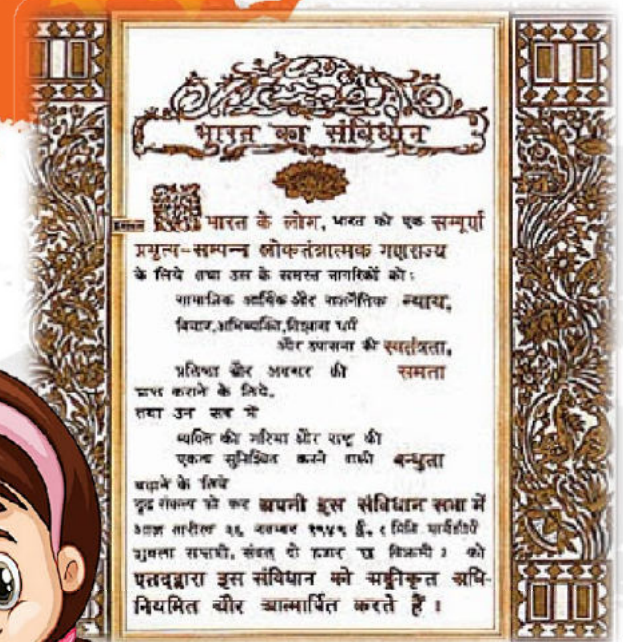 भारत का संविधान
भारत के लोग, भारत को एक सम्पूर्ण
प्रभुत्व-सम्पन्न लोकतंत्रात्मक गणराज्य
के लिये तथा उस के समस्त नागरिकों को:
सामाजिक आर्थिक और राजनैतिक न्याय,
विचार, अभिव्यक्ति, विश्वास धर्म
और उपासना की स्वतंत्रता,
प्रतिष्ठा और अवसर की समता
प्राप्त कराने के लिये,
तथा उन सब में
व्यक्ति की गरिमा और राष्ट्र की
एकता सुनिश्चित करने वाली बन्धुता
बढ़ाने के लिये
दृढ़ संकल्प हो कर अपनी इस संविधान सभा में
आज तारीख २६ नवम्बर १९४९ ई. (मिति मार्गशीर्ष
शुक्ला सप्तमी, संवत् दो हजार छ विक्रमी) को
एतद्द्वारा इस संविधान को अङ्गीकृत अधि-
नियमित और आत्मार्पित करते हैं।